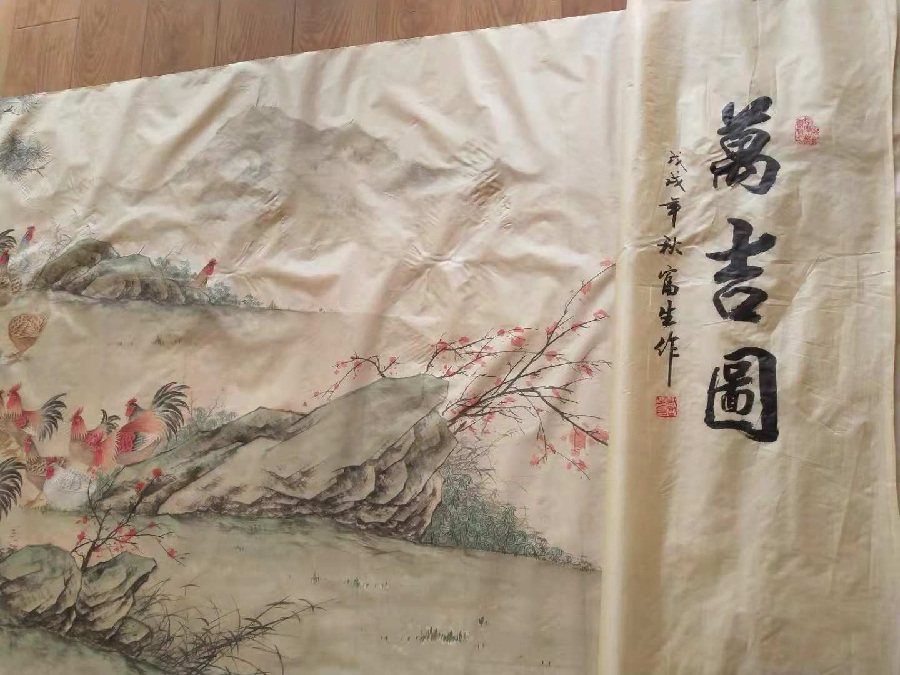 萬吉圖
戊戌年秋富生作